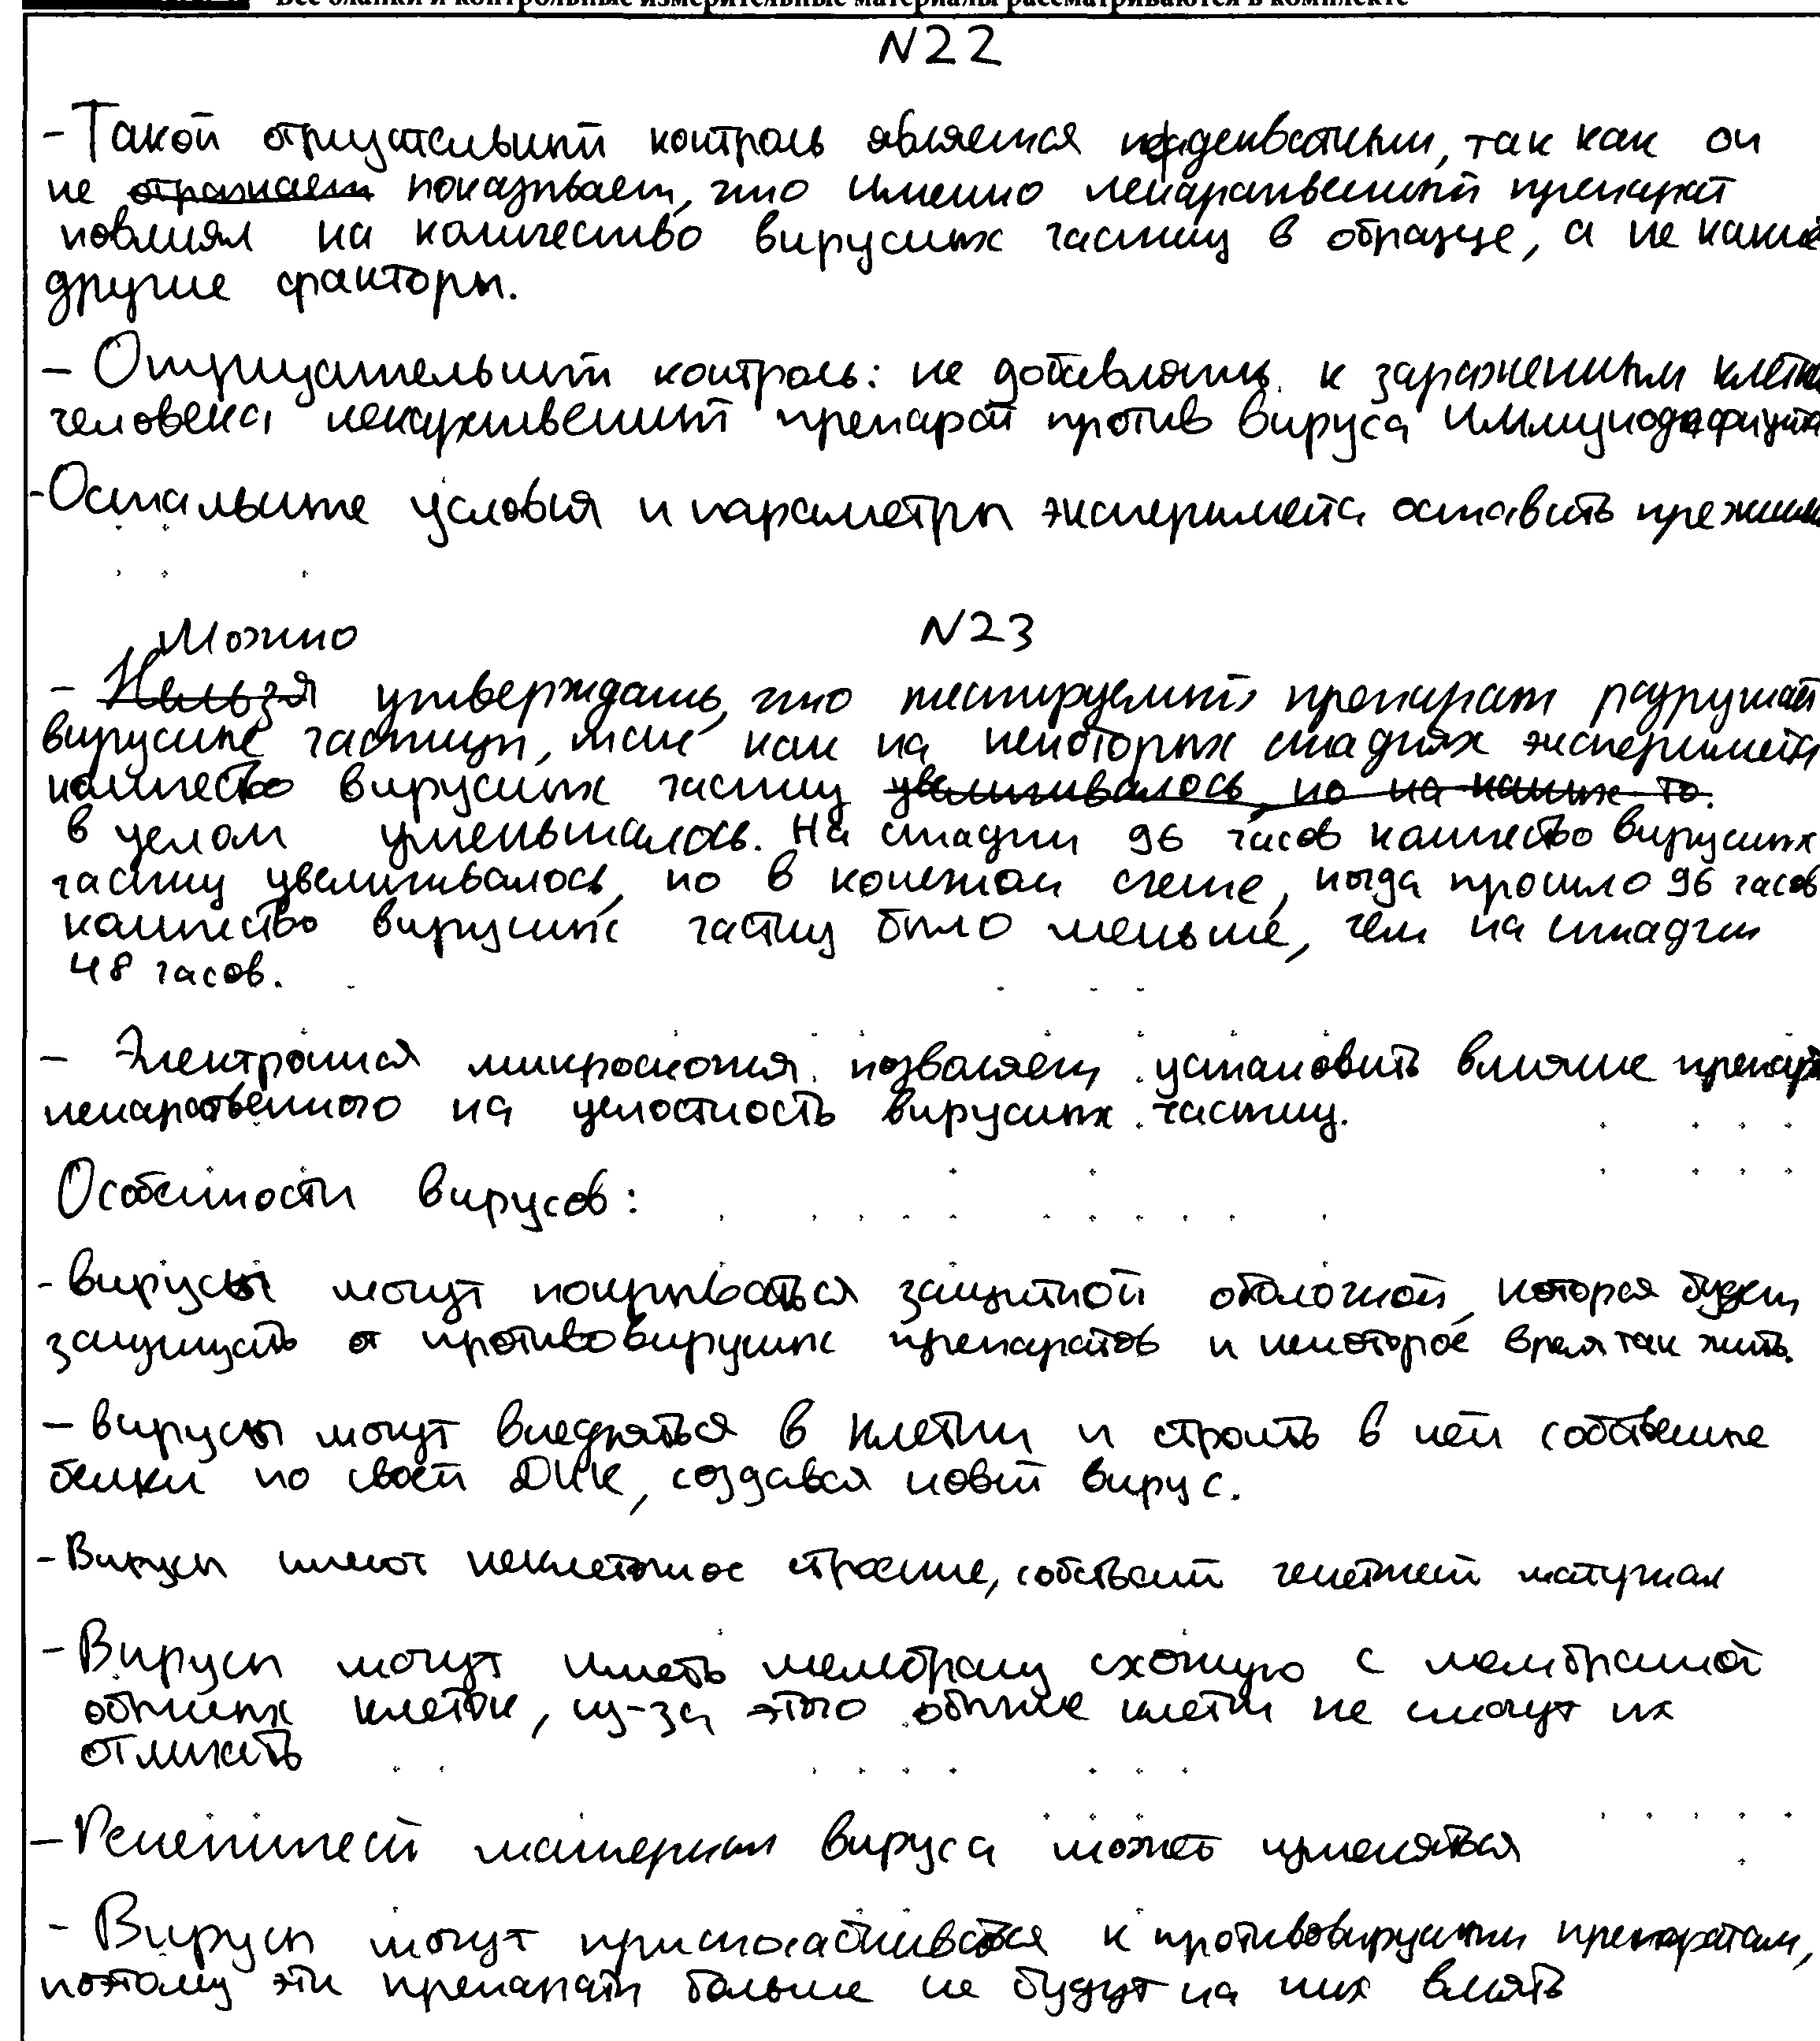 Все бланки и контрольные измерительные материалы рассматриваются в комплекте
N22
- Такой отрицательный контроль является неадекватным, так как он
не отражает показывает, что именно лекарственный препарат
повлиял на количество вирусных частиц в образце, а не какие
другие факторы.
- Отрицательный контроль: не добавлять к зараженным клетка
человека лекарственный препарат против вируса иммунодефицита
- Остальные условия и параметры эксперимента оставить прежним
Можно
N23
- Нельзя утверждать, что тестируемый препарат разрушает
вирусные частицы, так как на некоторых стадиях эксперимента
количество вирусных частиц увеличивалось, но на каких-то.
в целом уменьшалось. На стадии 96 часов количество вирусных
частиц увеличивалось, но в конечном счете, когда прошло 96 часов
количество вирусных частиц было меньше, чем на стадии
48 часов.
- Электронная микроскопия позволяет установить влияние препара
лекарственного на целостность вирусных частиц.
Особенности вирусов:
- вирусы могут покрываться защитной оболочкой, которая будет
защищать от противовирусных препаратов и некоторое время так жить.
- вирусы могут внедряться в клетки и строить в ней собственные
белки по своей ДНК, создавая новый вирус.
- Вирусы имеют неклеточное строение, собственный генетический материал
- Вирусы могут иметь мембрану схожую с мембраной
обычных клеток, из-за этого обычные клетки не смогут их
отличить
- Генетический материал вируса может изменяться
- Вирусы могут приспосабливаться к противовирусным препаратам,
поэтому эти препараты больше не будут на них влиять